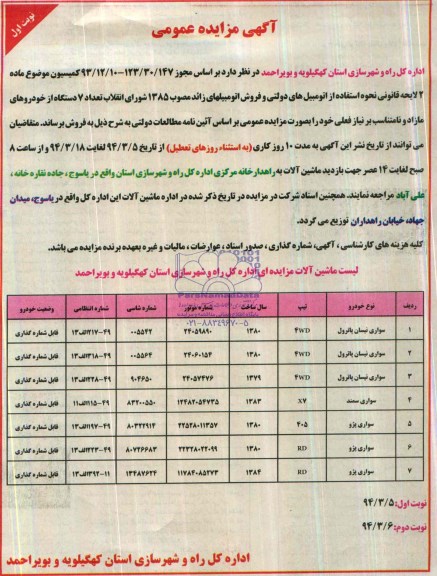 نوبت اول
آگهی مزایده عمومی
اداره کل راه و شهرسازی استان کهگیلویه و بویراحمد در نظر دارد بر اساس مجوز ۱۲۳/۳۰/۱۴۷-۹۳/۱۲/۱۰ کمیسیون موضوع ماده
۲ لایحه قانونی نحوه استفاده از اتومبیل های دولتی و فروش اتومبیلهای زائد مصوب ۱۳۸۵ شورای انقلاب تعداد ۷ دستگاه از خودروهای
مازاد و نامتناسب بر نیاز فعلی خود را بصورت مزایده عمومی بر اساس آئین نامه مطالعات دولتی به شرح ذیل به فروش برساند. متقاضیان
می توانند از تاریخ نشر این آگهی به مدت ۱۰ روز کاری (به استثناء روزهای تعطیل) از تاریخ ۹۴/۳/۵ لغایت ۹۴/۳/۱۸ و از ساعت ۸
صبح لغایت ۱۴ عصر جهت بازدید ماشین آلات به راهدارخانه مرکزی اداره کل راه و شهرسازی استان واقع در یاسوج، جاده نقاره خانه،
علی آباد مراجعه نمایند. همچنین اسناد شرکت در مزایده در تاریخ ذکر شده در اداره ماشین آلات این اداره کل واقع در یاسوج، میدان
جهاد، خیابان راهداران توزیع می گردد.
کلیه هزینه های کارشناسی، آگهی، شماره گذاری، صدور اسناد، عوارضات، مالیات و غیره بعهده برنده مزایده می باشد.
لیست ماشین آلات مزایده ای اداره کل راه و شهرسازی استان کهگیلویه و بویراحمد
ParsNamadData
۰۲۱-۸۸۳۴۹۶۷۰-۵
ردیف نوع خودرو تیپ سال ساخت شماره موتور شماره شاسی شماره انتظامی وضعیت خودرو
۱ سواری نیسان پاترول ۴WD ۱۳۸۰ ۲۴۰۵۹۸۹۰ ۰۰۵۵۴۲ ۴۹-۲۱۷الف۱۳ قابل شماره گذاری
۲ سواری نیسان پاترول ۴WD ۱۳۸۰ ۲۴۰۶۰۱۵۴ ۰۰۵۵۶۴ ۴۹-۳۱۸الف۱۳ قابل شماره گذاری
۳ سواری نیسان پاترول ۴WD ۱۳۷۹ ۲۴۰۵۷۴۷۶ ۹۰۴۶۵۰ ۴۹-۲۲۸الف۱۳ قابل شماره گذاری
۴ سواری سمند X۷ ۱۳۸۳ ۱۲۴۸۲۰۵۴۷۳۵ ۸۳۲۰۰۵۵۰ ۴۹-۱۱۵الف۱۱ قابل شماره گذاری
۵ سواری پژو ۴۰۵ ۱۳۸۰ ۲۲۵۲۸۰۱۱۳۵۷ ۸۰۳۲۲۹۱۴ ۴۹-۱۹۷الف۱۳ قابل شماره گذاری
۶ سواری پژو RD ۱۳۸۰ ۲۲۳۲۸۰۲۲۰۹۹ ۸۰۷۴۶۶۸۳ ۴۹-۲۲۳الف۱۳ قابل شماره گذاری
۷ سواری پژو RD ۱۳۸۴ ۱۱۷۸۴۰۸۵۲۷۳ ۱۳۴۸۷۶۲۴ ۱۱-۳۹۲الف۱۳ قابل شماره گذاری
نوبت اول: ۹۴/۳/۵
نوبت دوم: ۹۴/۳/۶
اداره کل راه و شهرسازی استان کهگیلویه و بویراحمد